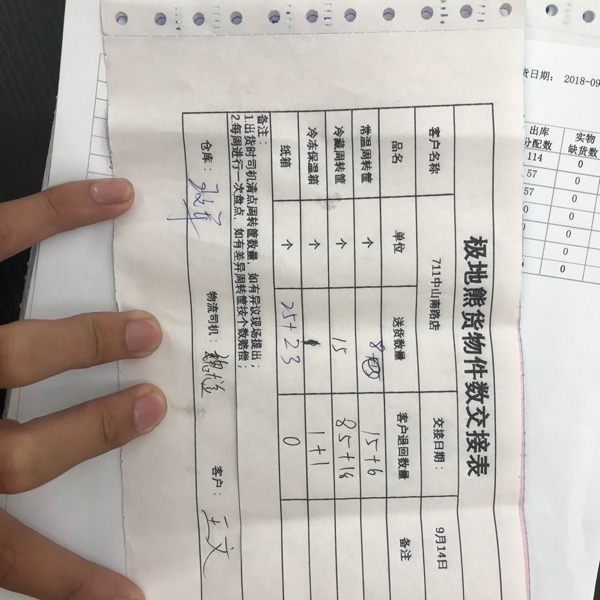 极地熊货物件数交接表
客户名称 711中山南路店 交接日期： 9月14日
品名 单位 送货数量 客户退回数量 备注
常温周转筐 个 8 15+6
冷藏周转筐 个 15 85+18
冷冻保温箱 个 1 1+1
纸箱 个 25+23 0
备注：
1.出货时司机清点周转筐数量，如有异议现场提出；
2.每周进行一次盘点，如有差异周转筐按个数赔偿；
仓库： 物流司机： 客户： 王文
货日期： 2018-09
出库 实物
分配数 缺货数
114 0
57 0
57 0
0
0
0
0